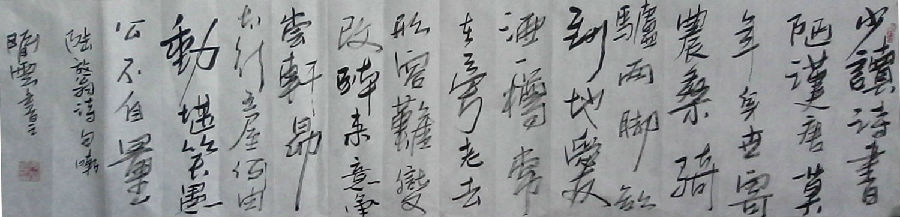 少讀诗書
陋漢唐莫
年身世寄
農桑骑
驢兩脚欲
到地愛
酒一樽常
在旁老去
形容雖變
改醉来意氣
尚軒昂
太行王屋何由
動堪笑愚
公不自量
陸放翁诗句
劉雲書